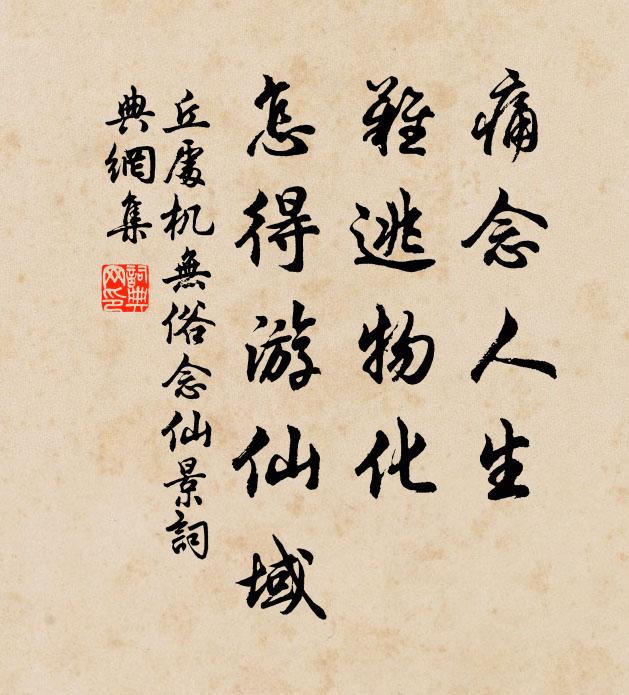 痛念人生
難逃物化
怎得游仙域
丘處机無俗念仙景詞
典網集
詞典網印